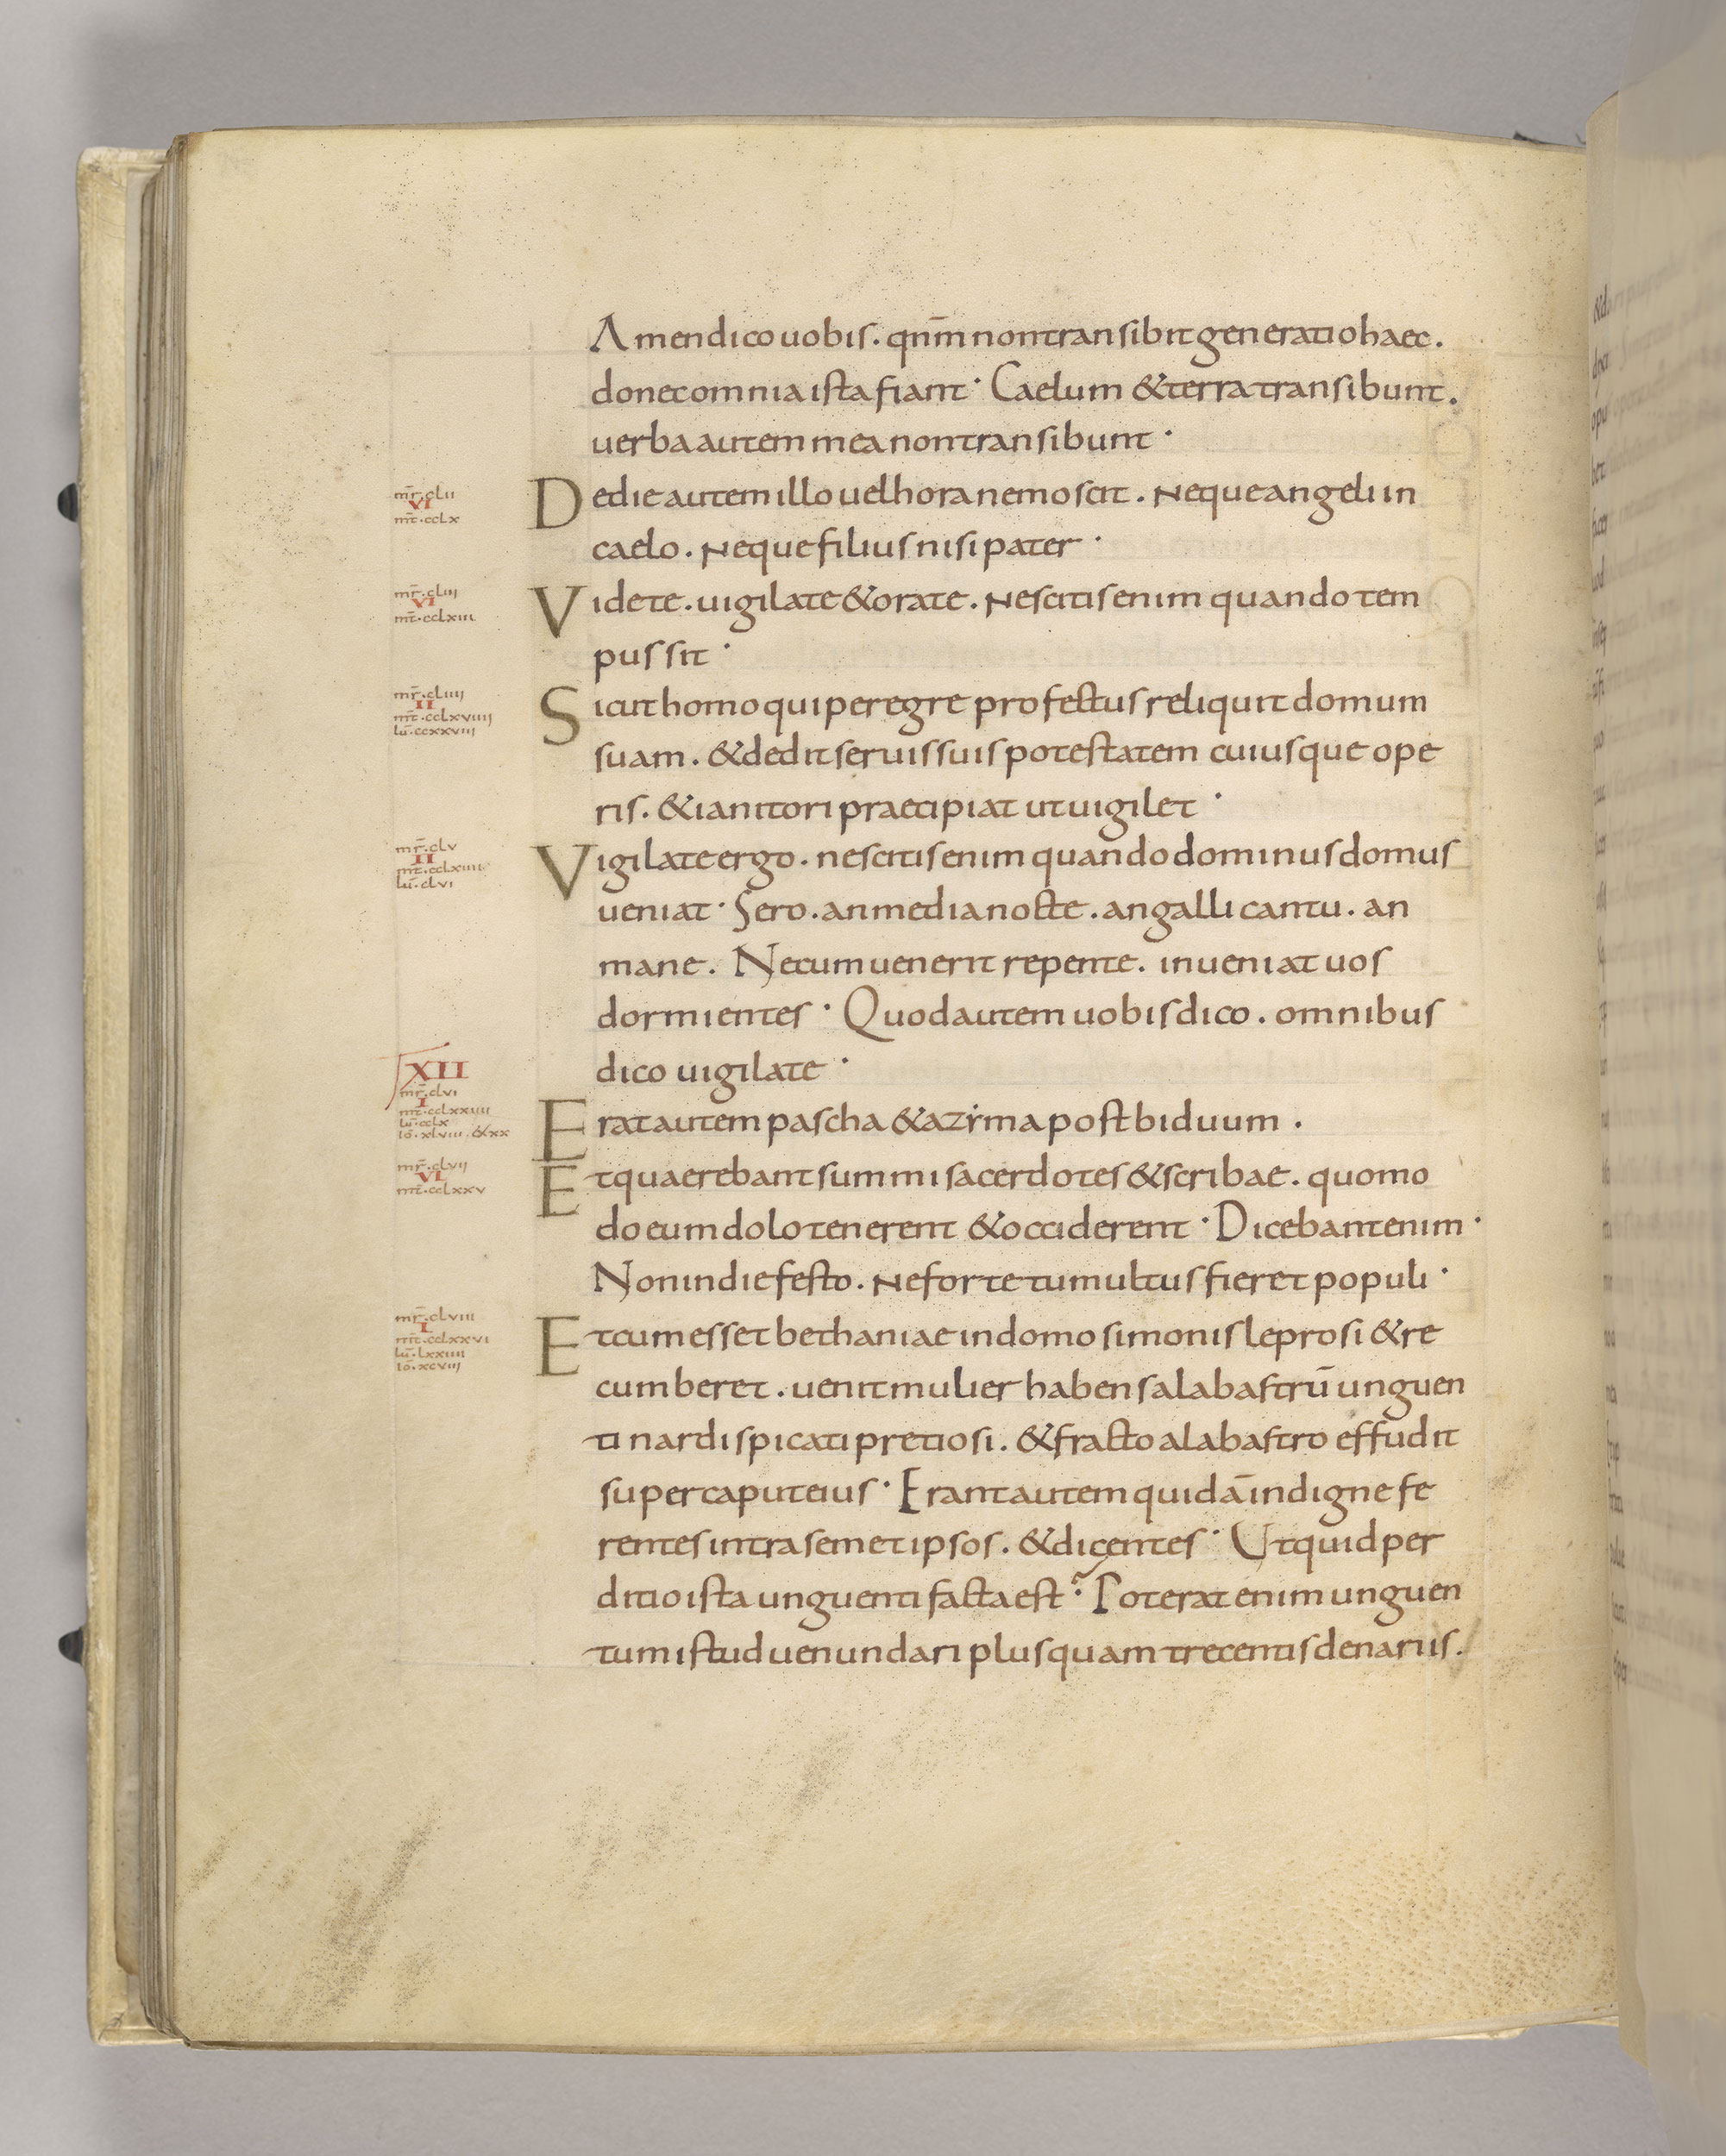 Amen dico uobis. qn̄m non transibit generatio haec.
donec omnia ista fiant· Caelum & terra transibunt.
uerba autem mea non transibunt·
mr̄.clii
VI
mt̄.cclx
De die autem illo uel hora nemo scit. Neque angeli in
caelo. Neque filius nisi pater·
mr̄.cliii
VI
mt̄.cclxiii
Videte. uigilate & orate. Nescitis enim quando tem
pus sit·
mr̄.cliiii
II
mt̄.cclxviiii
lū.ccxxviii
Sicut homo qui peregre profectus reliquit domum
suam. & dedit seruis suis potestatem cuiusque ope
ris. & ianitori praecipiat ut uigilet·
mr̄.clv
II
mt̄.cclxiiii
lū.clvi
Vigilate ergo. nescitis enim quando dominus domus
ueniat· Sero. an media nocte. an galli cantu. an
mane. Ne cum uenerit repente. inueniat uos
dormientes· Quod autem uobis dico. omnibus
dico uigilate·
XII
mr̄.clvi
I
mt̄.cclxxiiii
lū.cclx
iō.xlviii.&xx
Erat autem pascha & azẏma post biduum.
mr̄.clvii
VI
mt̄.cclxxv
Et quaerebant summi sacerdotes & scribae. quomo
do eum dolo tenerent & occiderent· Dicebant enim·
Non in die festo. Ne forte tumultus fieret populi·
mr̄.clviii
I
mt̄.cclxxvi
lū.lxxiiii
iō.xcviii
Et cum esset bethaniae in domo simonis leprosi & re
cumberet. uenit mulier habens alabastrū unguen
ti nardi spicati pretiosi. & fracto alabastro effudit
super caput eius· Erant autem quidā indigne fe
rentes intra semet ipsos. & dicentes· Ut quid per
ditio ista unguenti facta est? Poterat enim unguen
tum istud uenundari plus quam trecentis denariis.